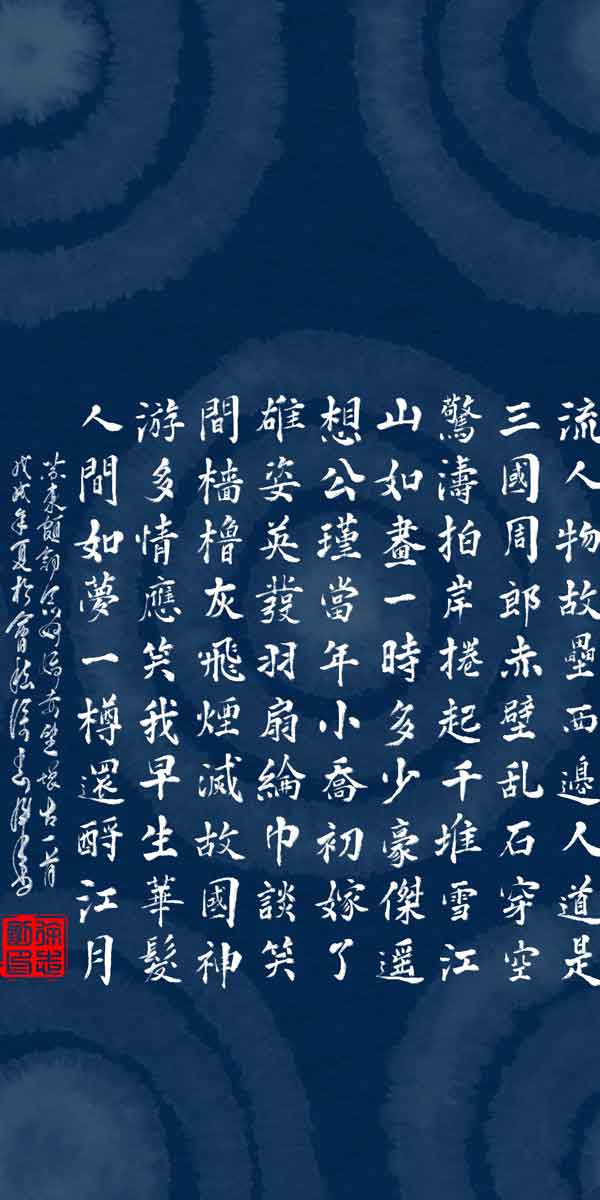 流人物故壘西邊人道是
三國周郎赤壁乱石穿空
驚濤拍岸捲起千堆雪江
山如畫一時多少豪傑遥
想公瑾當年小喬初嫁了
雄姿英發羽扇綸巾談笑
間檣櫓灰飛煙滅故國神
游多情應笑我早生華髮
人間如夢一樽還酹江月
蘇東坡詞念奴嬌赤壁懷古一首
戊戌年夏於會稽